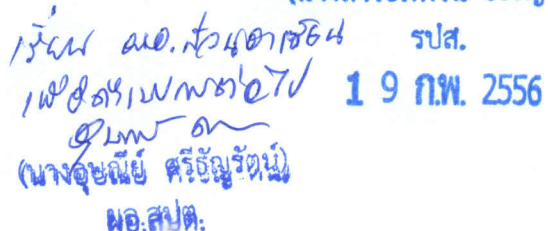 เรียน ผอ.ส่วนอาเซียน
รปส.
เพื่อดำเนินการต่อไป
19 ก.พ. 2556
(นางอุษณีย์ ศรีธัญรัตน์)
ผอ.สปต.